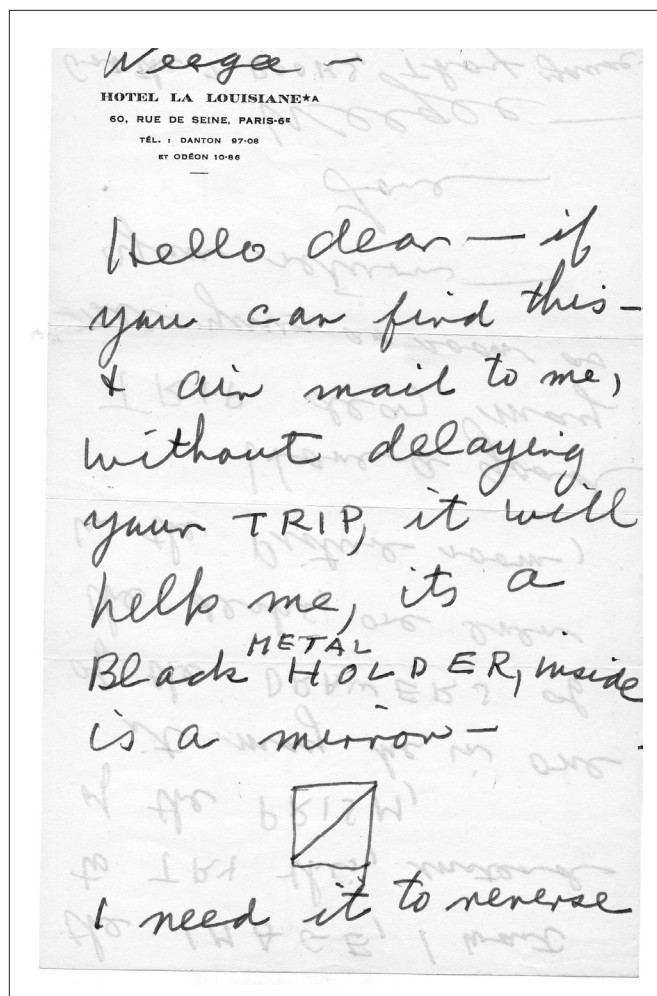 Weegee –
HOTEL LA LOUISIANE★A
60, RUE DE SEINE, PARIS-6E
TÉL. : DANTON 97-08
ET ODÉON 10-86
Hello dear — if
you can find this –
& air mail to me,
without delaying
your TRIP, it will
help me, its a
METAL
Black HOLDER, inside
is a mirror –
I need it to reverse